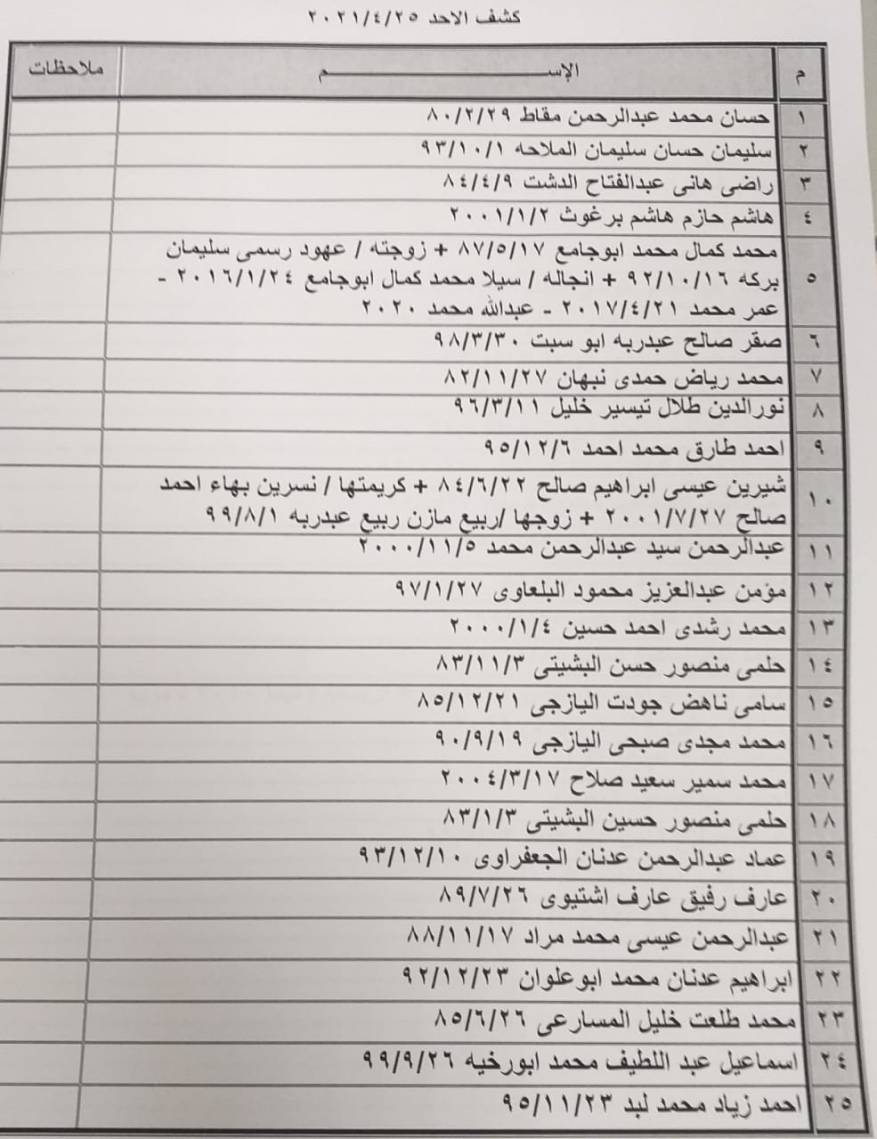 كشف الاحد ٢٠٢١/٤/٢٥
م الإســـم ملاحظات
١ حسان محمد عبدالرحمن مقاط ٨٠/٢/٢٩
٢ سليمان حسان سليمان الملاحه ٩٣/١٠/١
٣ راضى هانى عبدالفتاح الدشت ٨٤/٤/٩
٤ هاشم حازم هاشم برغوث ٢٠٠١/١/٢
٥ محمد كمال محمد ابوجامع ٨٧/٥/١٧ + زوجته / عهود رسمى سليمان
بركه ٩٢/١٠/١٦ + انجاله / سيلا محمد كمال ابوجامع ٢٠١٦/١/٢٤ -
عمر محمد ٢٠١٧/٤/٢١ - عبدالله محمد ٢٠٢٠
٦ صقر صالح عبدربه ابو سبت ٩٨/٣/٣٠
٧ محمد رياض حمدى نبهان ٨٢/١١/٢٧
٨ نورالدين طلال تيسير خليل ٩٦/٣/١١
٩ احمد طارق محمد احمد ٩٥/١٢/٦
١٠ شيرين عيسى ابراهيم صالح ٨٤/٦/٢٢ + كريمتها / نسرين بهاء احمد
صالح ٢٠٠١/٧/٢٧ + زوجها/ ربيع مازن ربيع عبدربه ٩٩/٨/١
١١ عبدالرحمن سيد عبدالرحمن محمد ٢٠٠٠/١١/٥
١٢ مؤمن عبدالعزيز محمود البلعاوى ٩٧/١/٢٧
١٣ محمد رشدى احمد حسين ٢٠٠٠/١/٤
١٤ حلمى منصور حسن البشيتى ٨٣/١١/٣
١٥ سامى ناهض جودت اليازجى ٨٥/١٢/٢١
١٦ محمد مجدى صبحى اليازجى ٩٠/٩/١٩
١٧ محمد سمير سعيد صلاح ٢٠٠٤/٣/١٧
١٨ حلمى منصور حسين البشيتى ٨٣/١/٣
١٩ عماد عبدالرحمن عدنان الجعفراوى ٩٣/١٢/١٠
٢٠ عارف رفيق عارف اشتيوى ٨٩/٧/٢٦
٢١ عبدالرحمن عيسى محمد مراد ٨٨/١١/١٧
٢٢ ابراهيم عدنان محمد ابوعلوان ٩٢/١٢/٢٣
٢٣ محمد طلعت خليل المسارعى ٨٥/٦/٢٦
٢٤ اسماعيل عبد اللطيف محمد ابورخيه ٩٩/٩/٢٦
٢٥ احمد زياد محمد لبد ٩٥/١١/٢٣